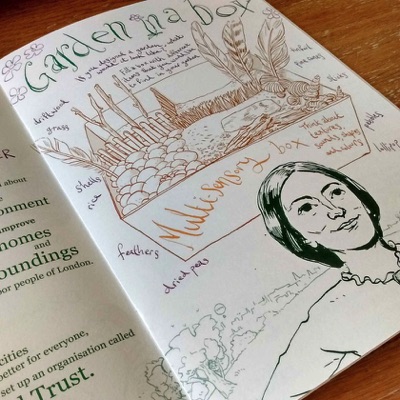 Garden in a box
If you designed a garden, what
would it look like?
Fill a box with different
items that you would like
to find in your garden
driftwood
grass
shells
rice
feathers
dried peas
pine cones
sticks
pebbles
Multisensory box
Think about
textures
sounds, shapes
and colours
ER
d about
e
onment
improve
homes
and
roundings
oor people of London.
cities
better for everyone,
set up an organisation called
l Trust.